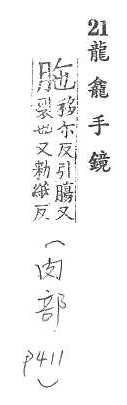 21 龍龕手鏡
胣 移尔反引腸又
裂也又勅紙反
(肉部 p411)